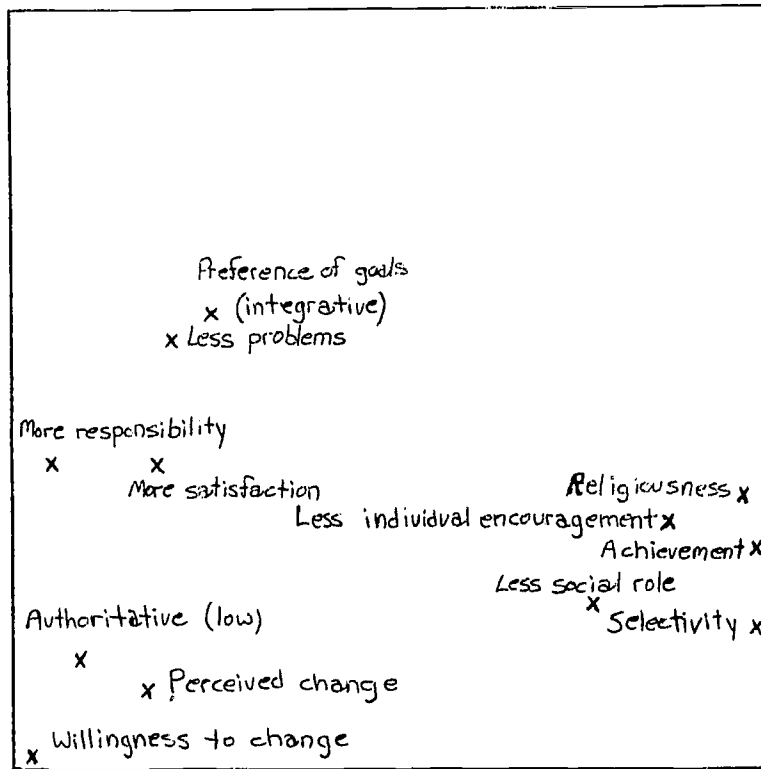 Preference of goals
x (integrative)
x Less problems
More responsibility
x x
More satisfaction
Religiousness x
Less individual encouragement x
Achievement x
Less social role
x
Selectivity x
Authoritative (low)
x
x Perceived change
x Willingness to change